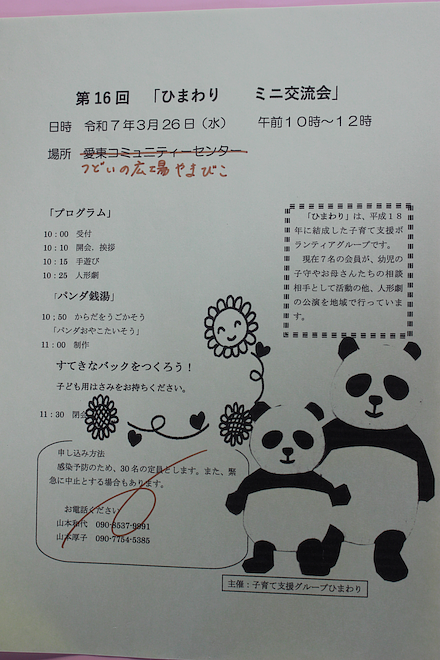 第16回 「ひまわり ミニ交流会」
日時 令和7年3月26日（水） 午前10時～12時
場所 愛東コミュニティーセンター
つどいの広場やまびこ
「プログラム」
10：00 受付
10：10 開会，挨拶
10：15 手遊び
10：25 人形劇
「パンダ銭湯」
10；50 からだをうごかそう
「パンダおやこたいそう」
11：00 制作
すてきなバックをつくろう！
子ども用はさみをお持ちください。
11：30 閉会
「ひまわり」は、平成18
年に結成した子育て支援ボ
ランティアグループです。
現在7名の会員が、幼児の
子守やお母さんたちの相談
相手として活動の他、人形劇
の公演を地域で行っていま
す。
申し込み方法
感染予防のため、30名の定員とします。また、緊
急に中止とする場合もあります。
お電話ください
山本和代 090-8537-9891
山本厚子 090-7754-5385
主催：子育て支援グループひまわり